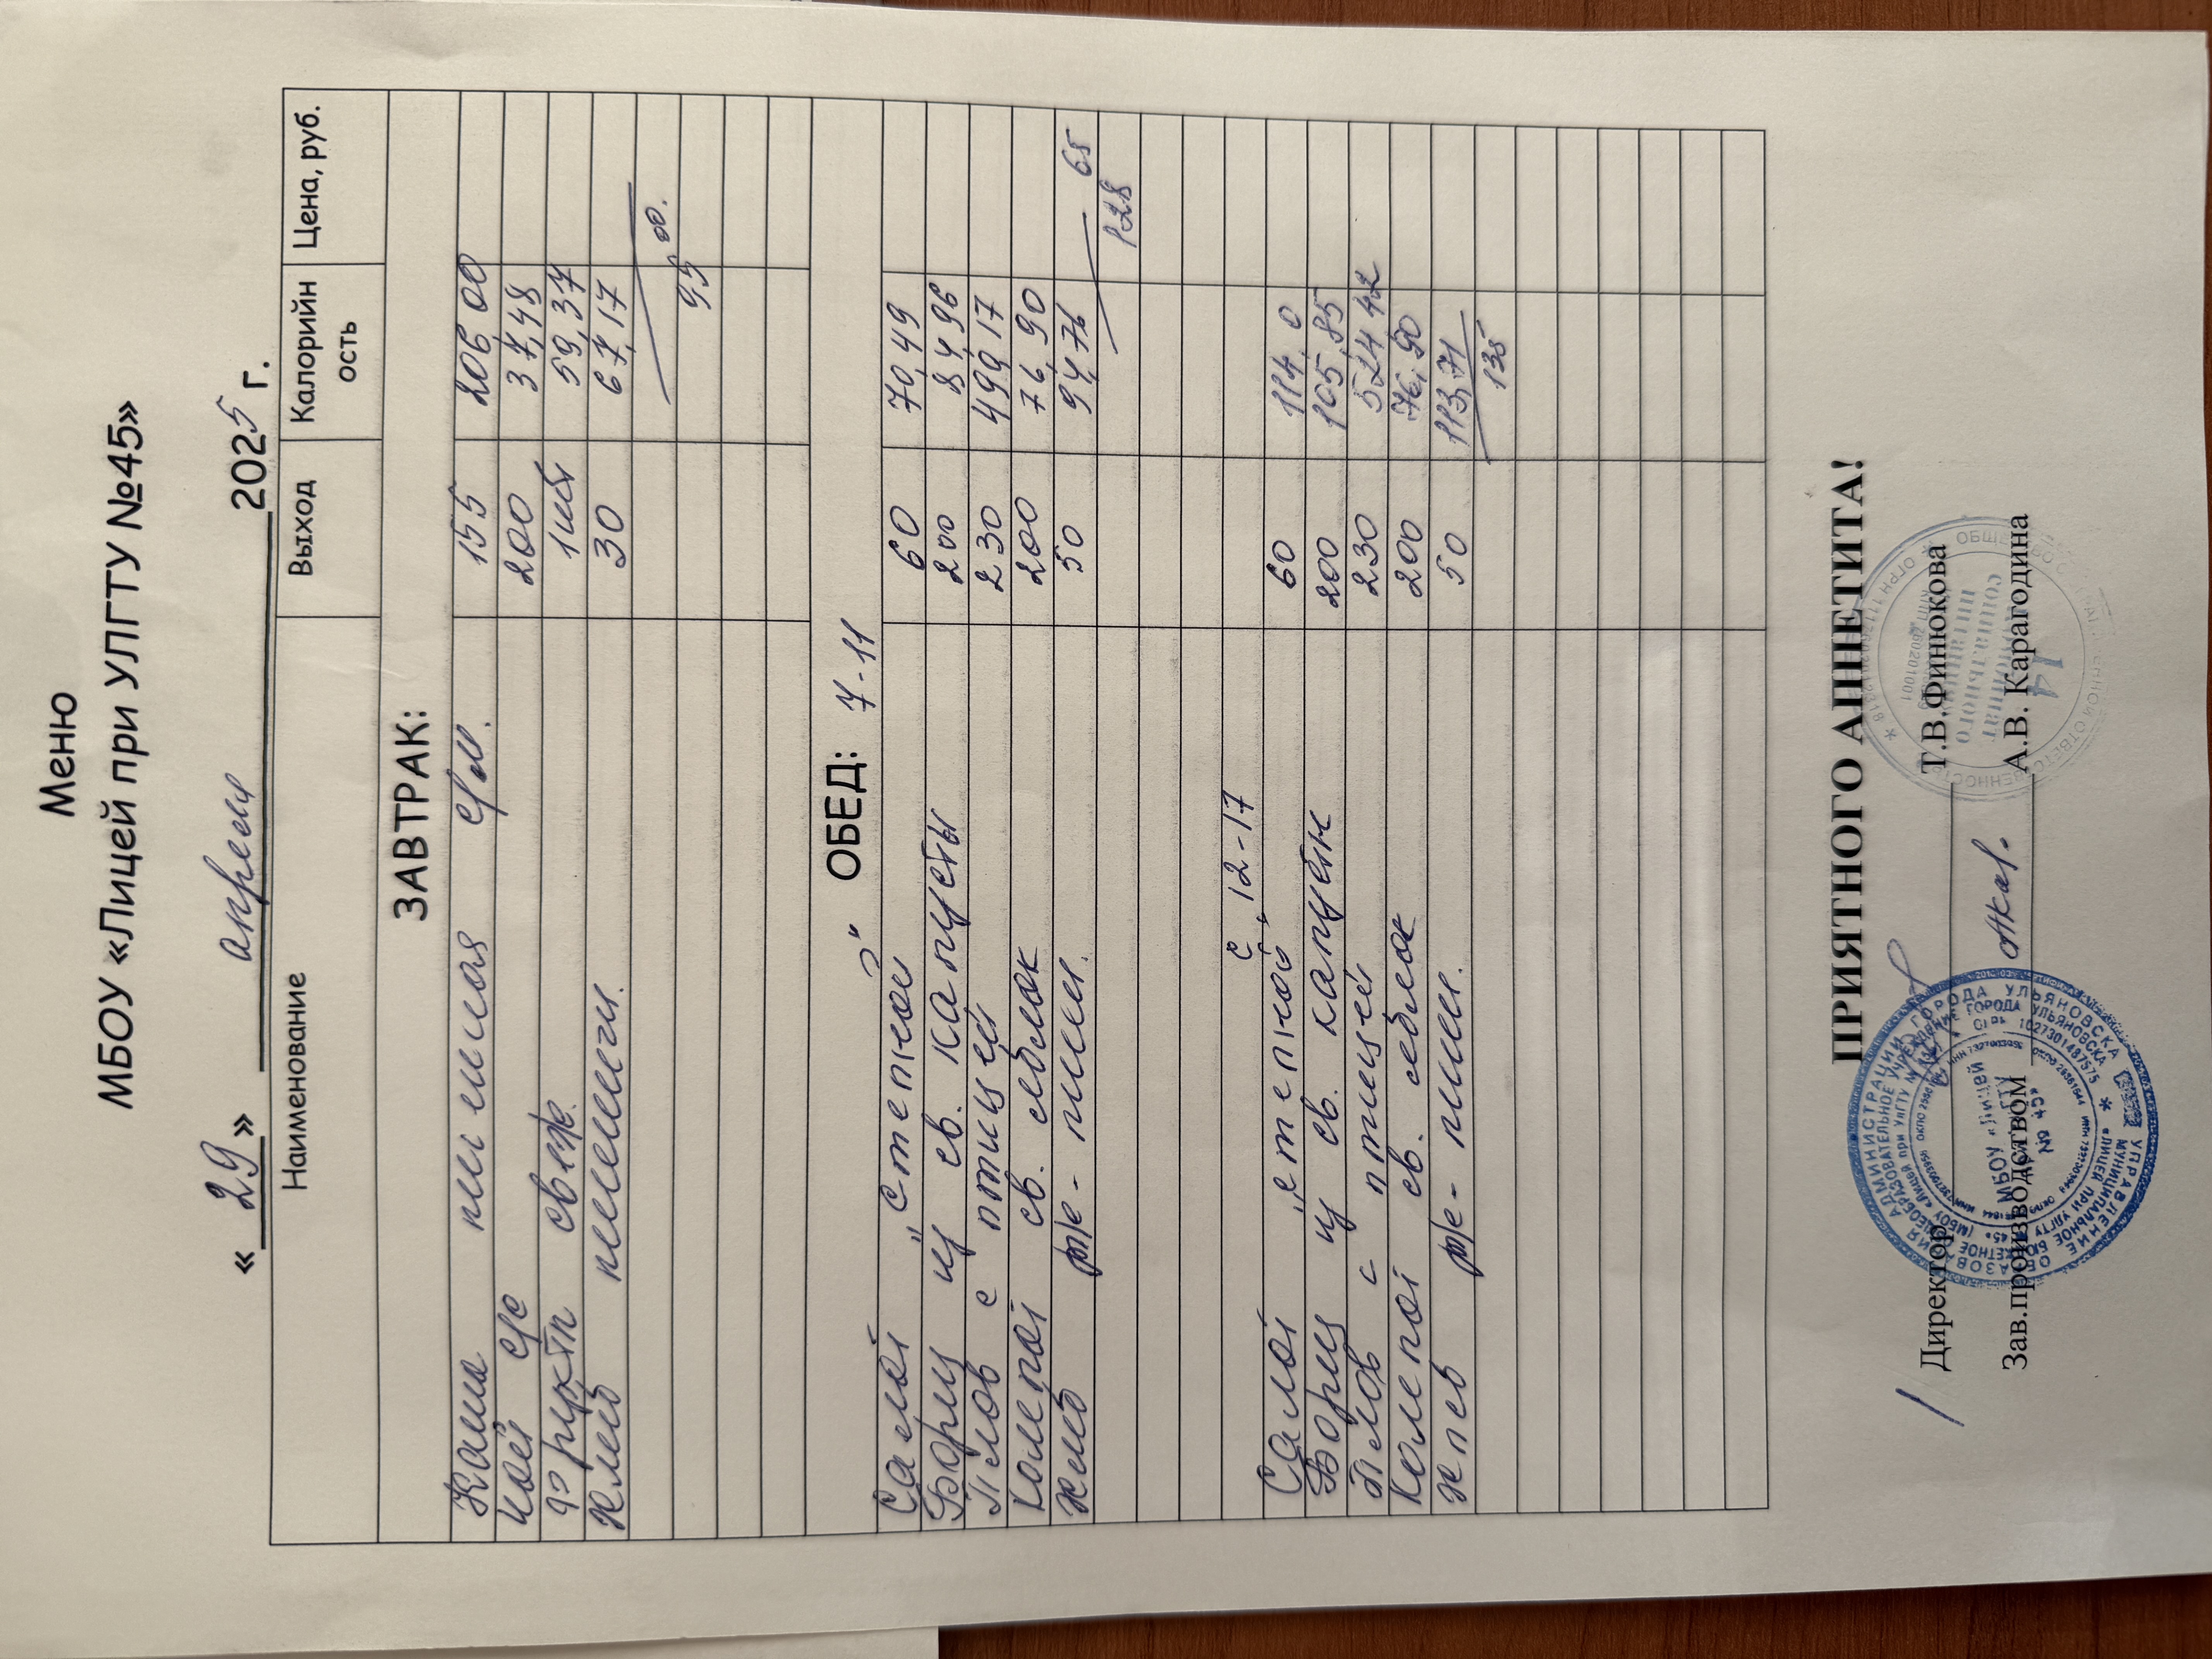 Меню
МБОУ «Лицей при УЛГТУ №45»
« 29 » апреля 2025 г.
Наименование Выход Калорийность Цена, руб.
ЗАВТРАК:
Каша пшенная с/м. 155 206,00
Чай с/с 200 37,48
Фрукты свеж. 1шт 59,37
Хлеб пшенич. 30 67,17
95 00.
ОБЕД: 7-11
Салат „Степной" 60 70,49
Борщ из св. капусты 200 84,96
Плов с птицей 230 499,17
Компот св. яблок 200 76,90
Хлеб рж- пшен. 50 94,76
128 65
с 12-17
Салат „степной" 60 114,0
Борщ из св. капусты 200 105,85
Плов с птицей 230 524,42
Компот св. яблок 200 76,90
Хлеб рж- пшен. 50 113,71
135
ПРИЯТНОГО АППЕТИТА!
Директор Т.В.Финюкова
Зав.производством А.В. Карагодина
МБОУ «Лицей
при УлГТУ
№ 45»